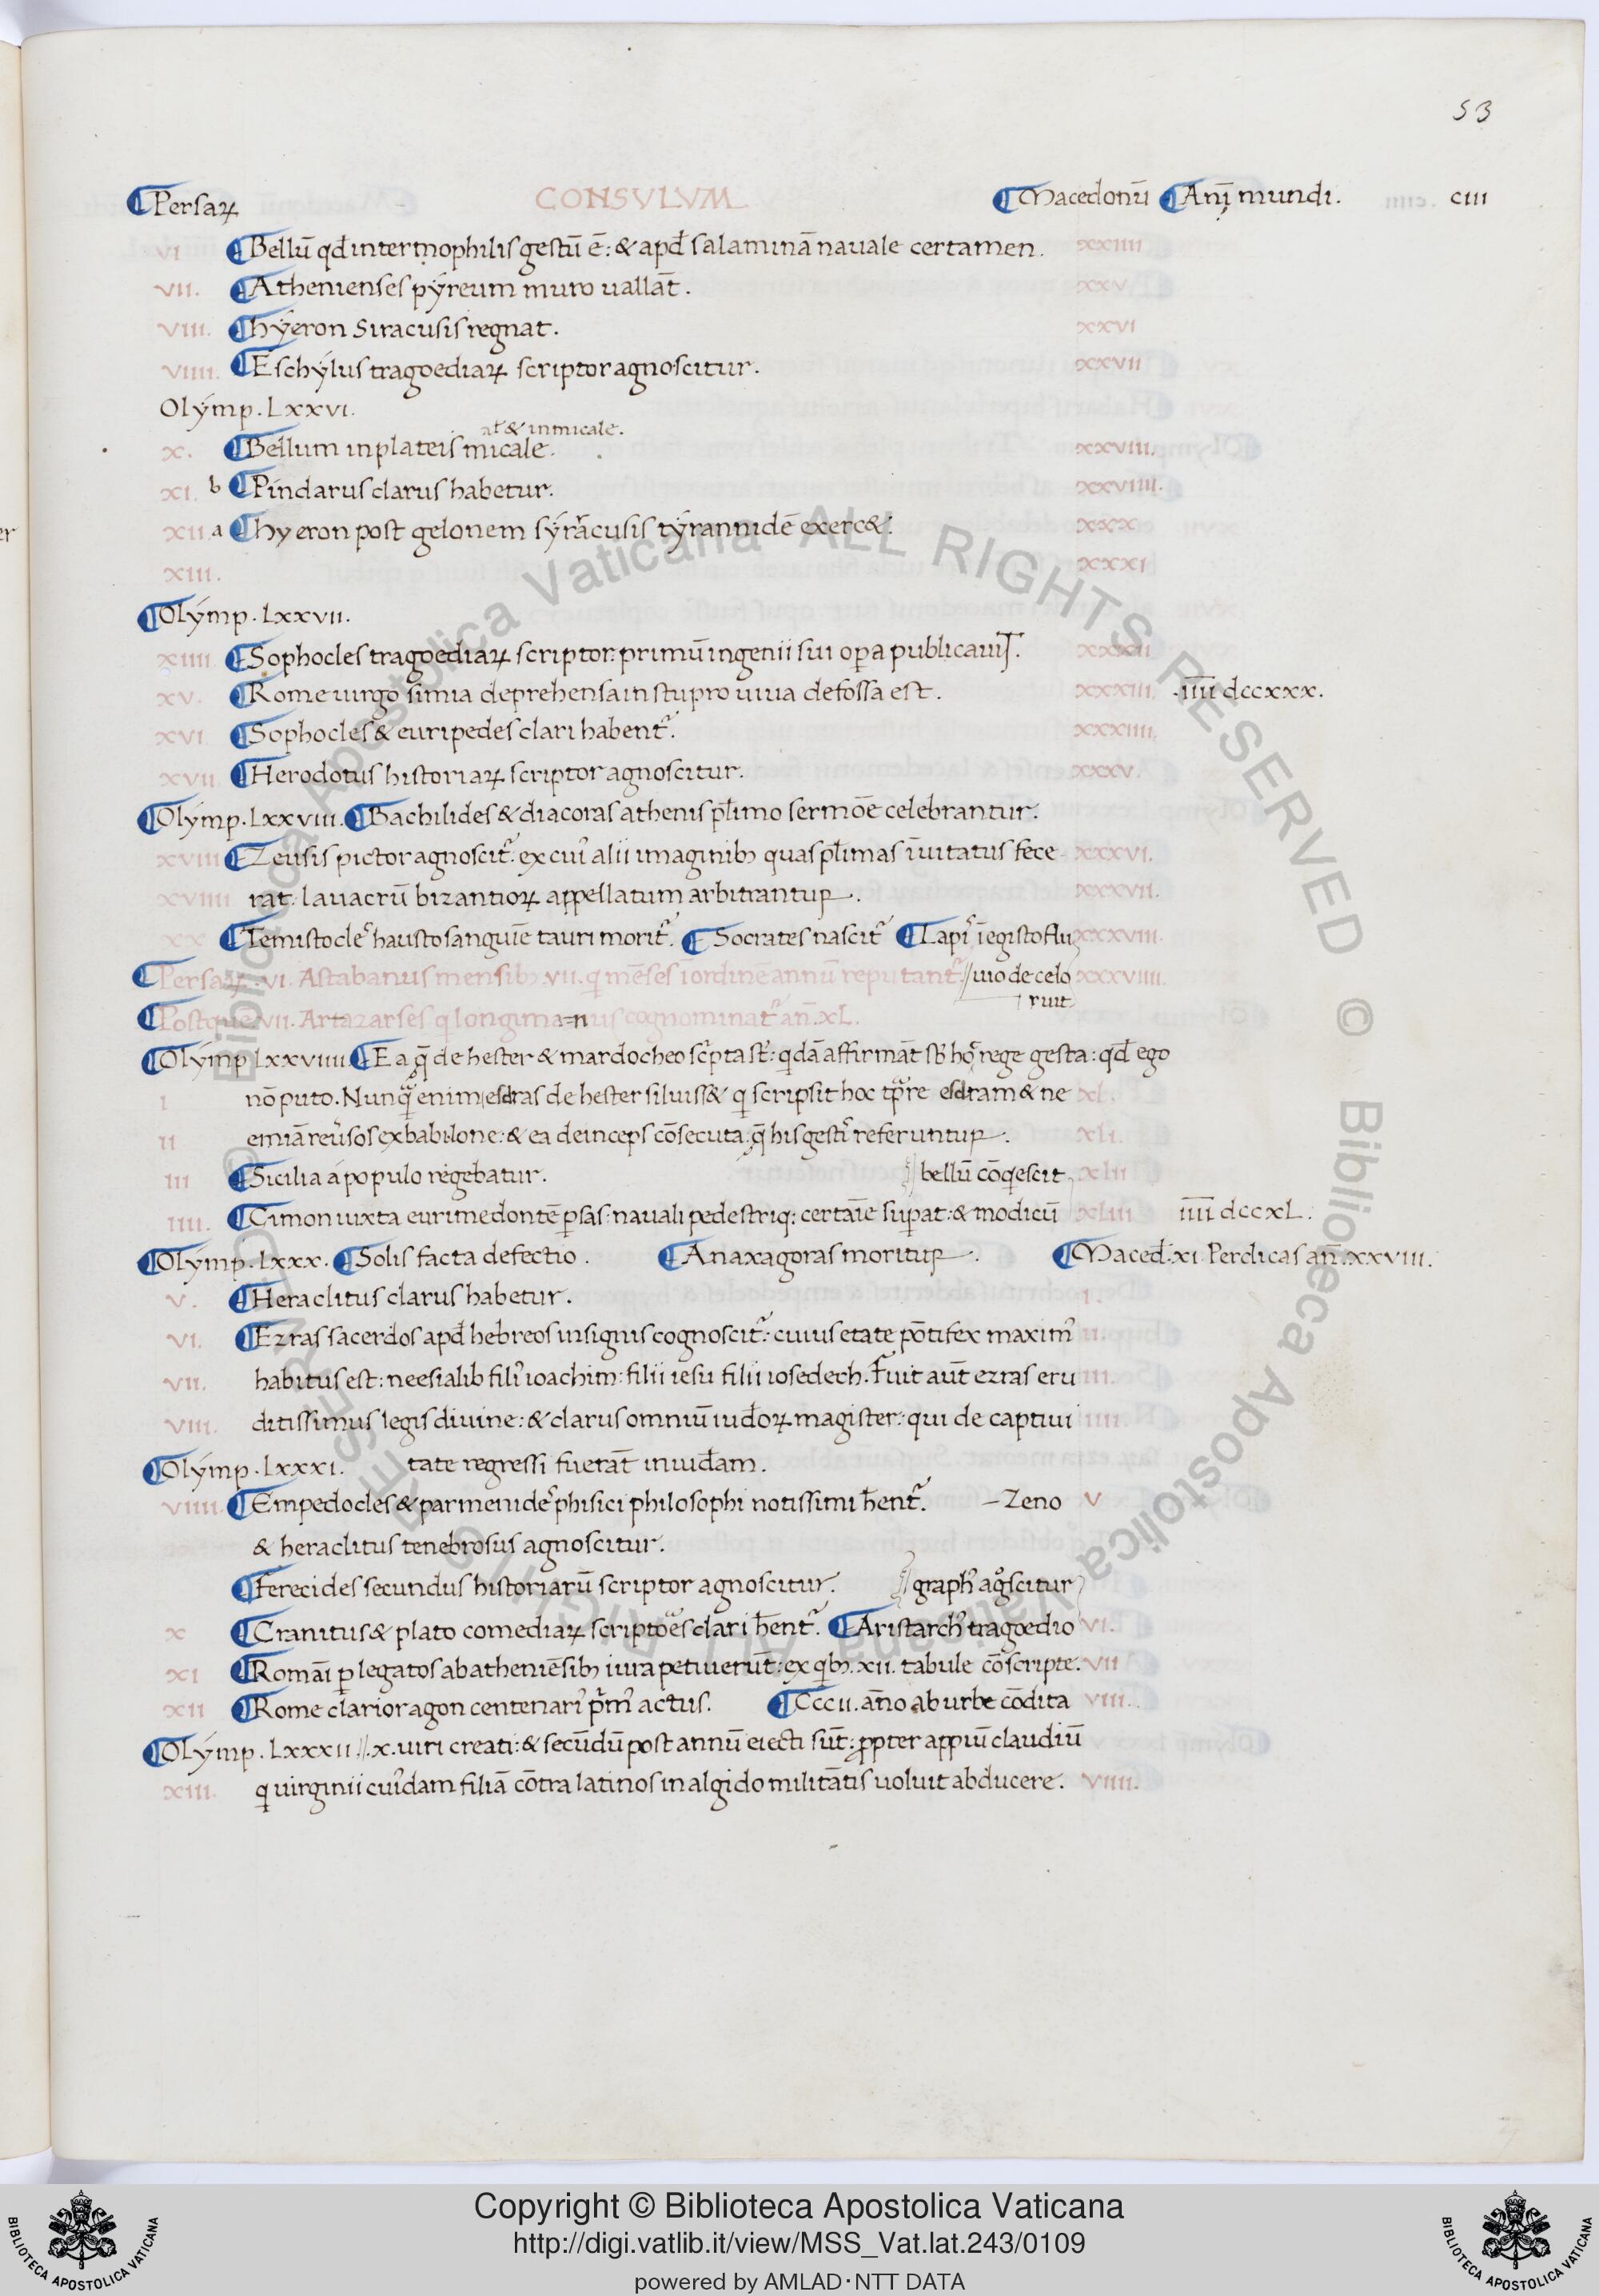 53
¶Persaꝝ CONSVLVM ¶Macedonū ¶Anī mundi. CIII
VI ¶Bellū qđ intermophilis gestū ē: & apđ salaminā nauale certamen. XXIIII
VII. ¶Athenienses pyreum muro uallāt. XXV
VIII. ¶hyeron siracusis regnat. XXVI
VIIII. ¶Eschylus tragoediaꝝ scriptor agnoscitur. XXVII
Olymp. LXXVI.
al' & in micale.
X. ¶Bellum in plateis micale. XXVIII.
XI. b ¶Pindarus clarus habetur. XXVIIII.
XII. a ¶hyeron post gelonem syracusis tyrannidē exerc&. XXX
XIII. XXXI
¶Olymp. LXXVII.
XIIII ¶Sophocles tragoediaꝝ scriptor: primū ingenii sui oꝑa publicauit. XXXII
XV. ¶Rome uirgo simia deprehensa in stupro uiua defossa est. XXXIII. .īīīī dccxxx.
XVI ¶Sophocles & euripedes clari habent͛. XXXIIII.
XVII ¶Herodotus historiaꝝ scriptor agnoscitur. XXXV.
¶Olymp. LXXVIII. ¶Bachilides & diacoras athenis pl̄imo sermōe celebrantur.
XVIII ¶Zeusis pictor agnoscit͛: ex cui᾽ alii imaginib; quas pl̄imas īuitatus fece XXXVI.
XVIIII rat: lauacrū bizantioꝝ appellatum arbitrantur. XXXVII.
XX ¶Temistocle᾽ hausto sanguīe tauri morit͛. ¶Socrates nascit͛ ¶Lapi᾽ ī egisto flu XXXVIII.
¶Persaꝝ. VI. Astabanus mensib; .VII. q mēses ī ordinē annū reputant͛. // uio de celo XXXVIIII.
ruit
¶Post que VII. Artazarses q longimanus cognominat͛ an̄. XL.
¶Olymp LXXVIIII ¶Ea q̄ de hester & mardocheo sc͛pta st͛: qdā affirmāt sb̄ ho᾽ rege gesta: qđ ego
I nō puto. Nunq̄ enim esdras de hester siluiss& q scripsit hoc tp̄re esdram & ne XL.
II emiā reu͛sos ex babilone: & ea deinceps cōsecuta: q̄ his gesti᾽ referuntur. XLI.
III ¶Sicilia a populo regebatur. // bellū cōq̇escit XLII
IIII. ¶Cimon iuxta eurimedontē ꝑsas: nauali pedestriq; certaīe suꝑat: & modicū XLIII īīīī dccXL.
¶Olymp. LXXX. ¶Solis facta defectio. ¶Anaxagoras moritur. ¶Maceđ. XI. Perdicas an̄. XXVIII.
V. ¶Heraclitus clarus habetur. I.
VI. ¶Ezras sacerdos apđ hebreos insignis cognoscit͛: cuius etate pōtifex maxim᾽ II.
VII. habitus est: neesialib fili᾽ ioachim: filii iesu filii iosedech. Fuit aūt ezras eru III.
VIII. ditissimus legis diuine: & clarus omniū iudeoꝝ magister: qui de captiui IIII
¶Olymp. LXXXI. tate regressi fuerāt in iudam.
VIIII. ¶Empedocles & parmenide᾽ phisici philosophi notissimi h̄ent͛. – Zeno V
& heraclitus tenebrosus agnoscitur.
¶Ferecides secundus historiarū scriptor agnoscitur. // graph᾽ agn̊scitur
X ¶Cranitus & plato comediaꝝ scriptoēs clari h̄ent͛. ¶Aristarch᾽ tragoedio VI.
XI ¶Romāi ꝑ legatos ab atheniēsib; iura petiuerūt: ex qb;. XII. tabule cōscripte. VII
XII ¶Rome clarior agon centenari᾽ p͛m᾽ actus. ¶Cccii. āno ab urbe cōdita VIII.
¶Olymp. LXXXII // .X. uiri creati: & secūdū post annū eiecti sūt: ꝓpter appiū claudiū
XIII. q uirginii cui᾽dam filiā cōtra latinos in algido militātis uoluit abducere. VIIII.
Copyright © Biblioteca Apostolica Vaticana
http://digi.vatlib.it/view/MSS_Vat.lat.243/0109
powered by AMLAD·NTT DATA